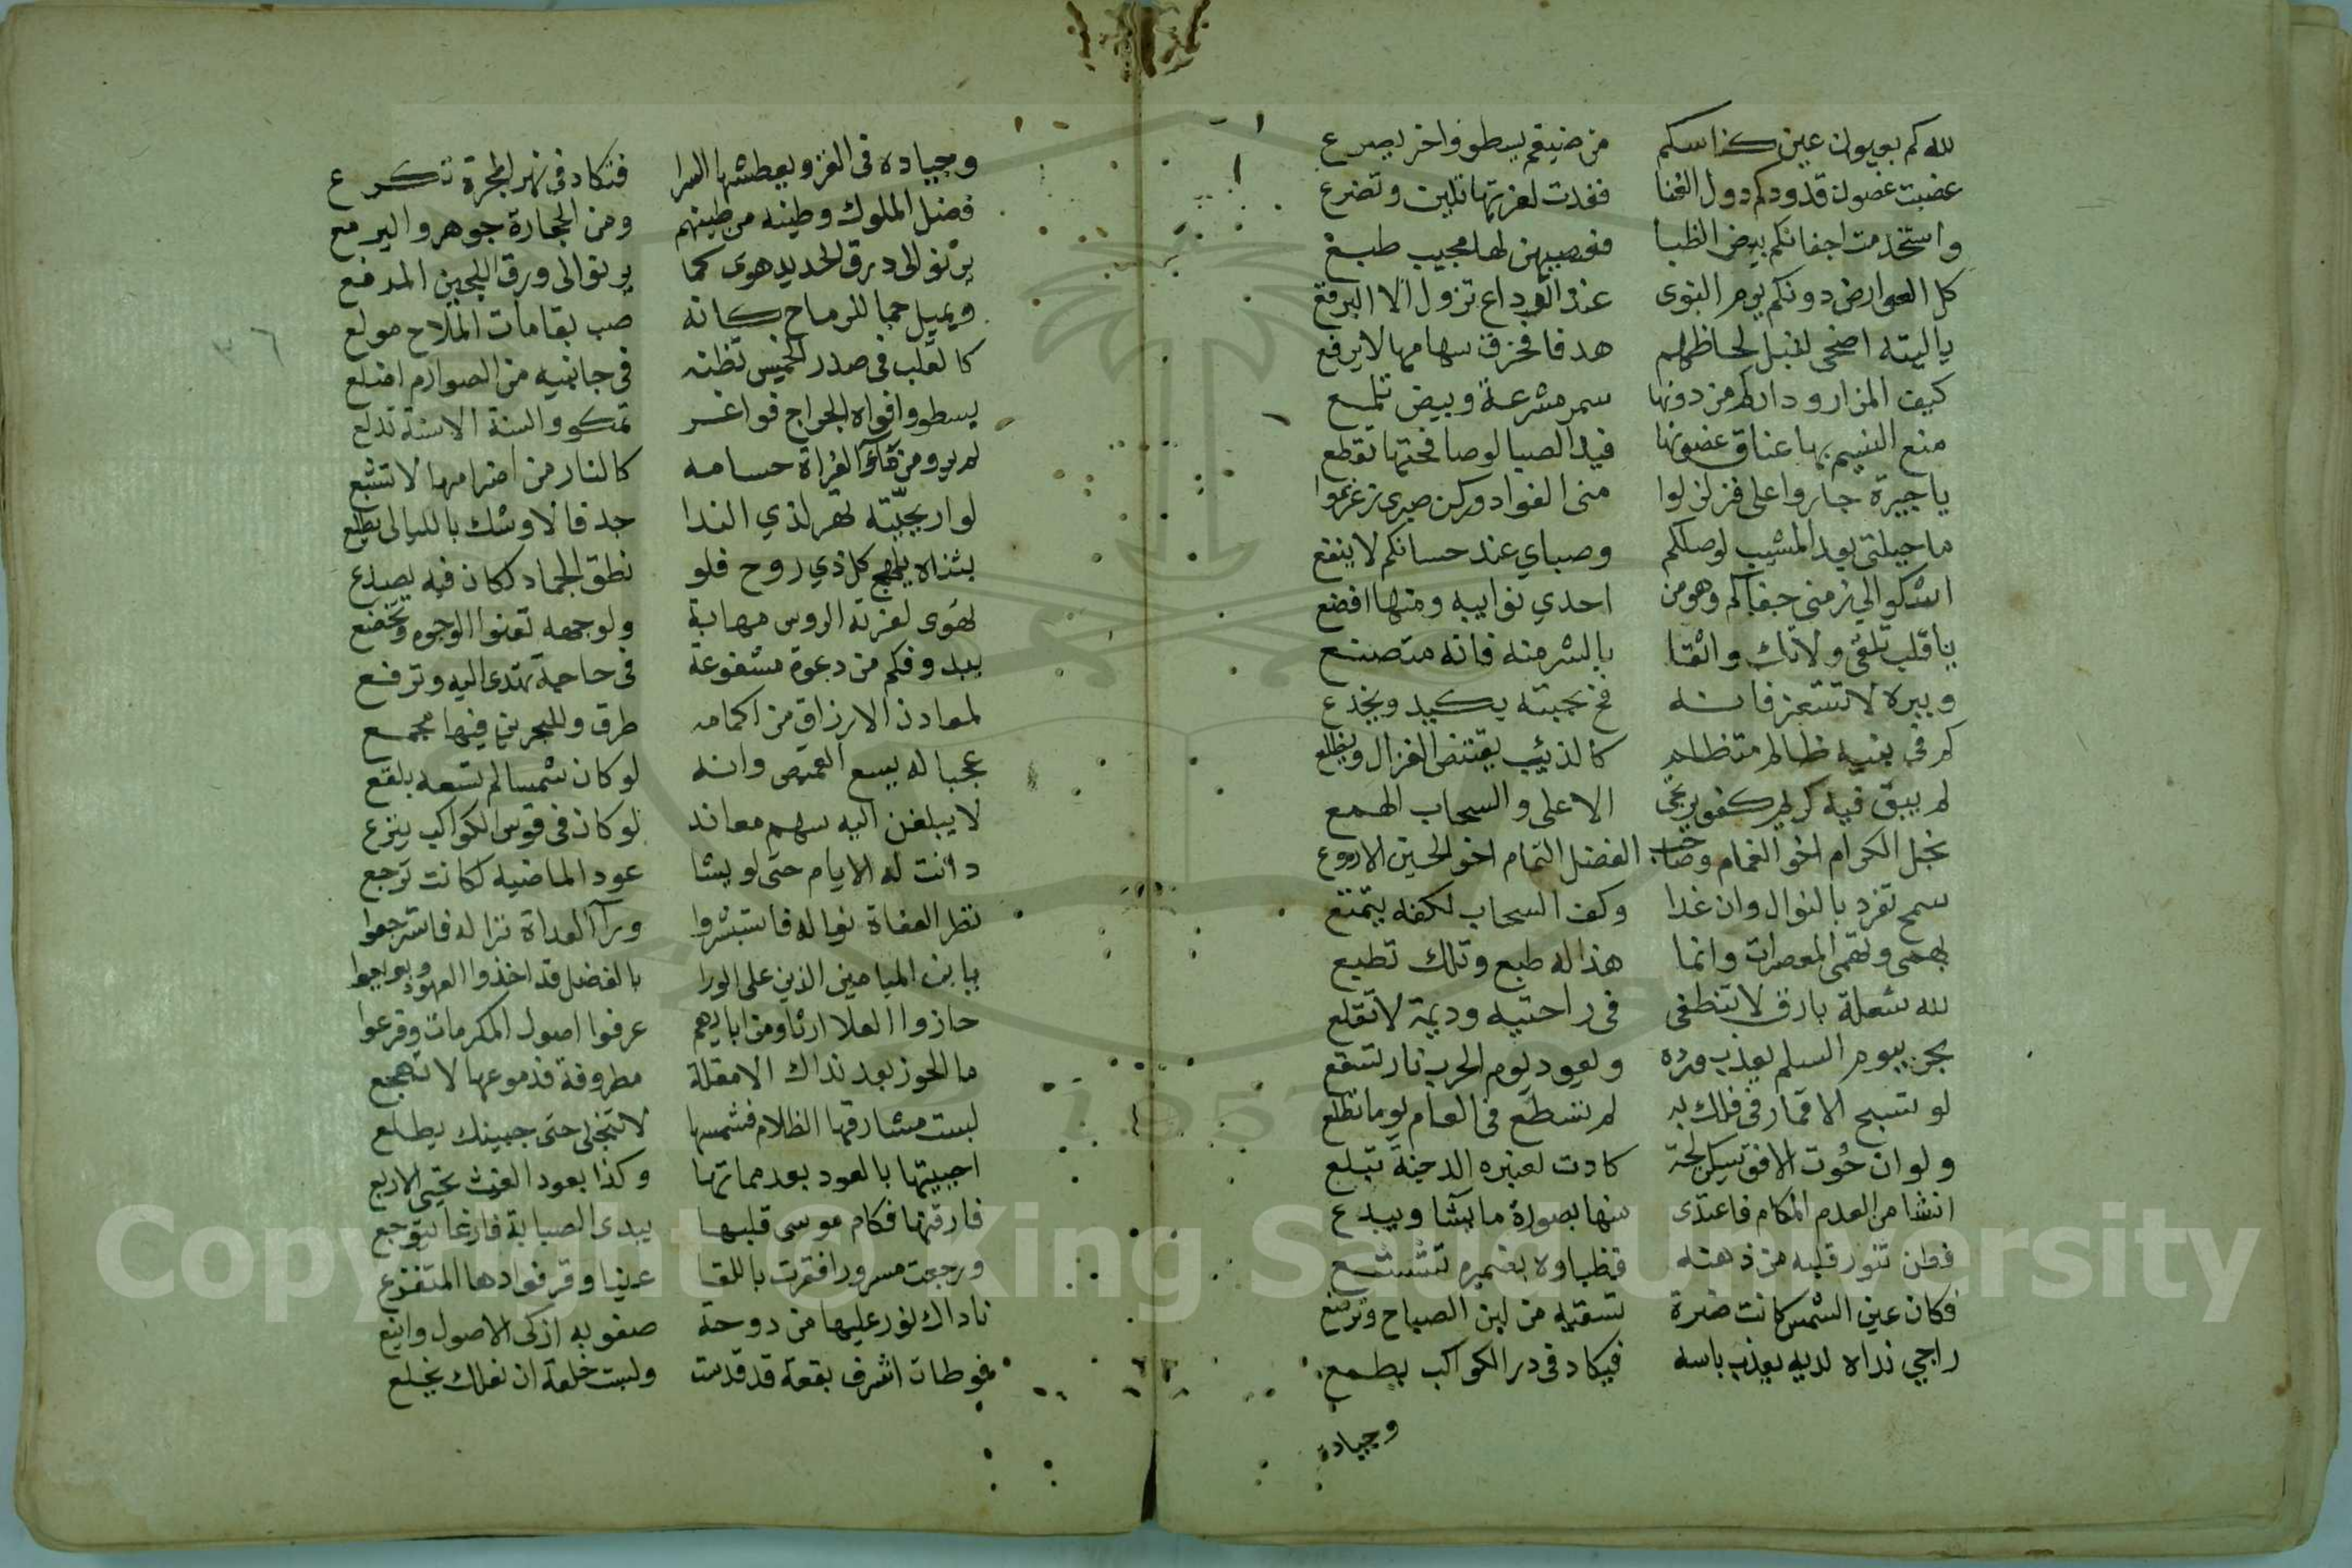 لله كم بعيون عين كناسكم من ضيغم يسطو واخر يصرع
غضبت غصون قدودكم دول القنا فغدت لعزتها تلين وتضرع
واستخدمت اجفانكم بيض الظبا فعصيهن لها مجيب طيع
كل العوارض دونكم يوم النوى عند الوداع تزول الا البرقع
ياليته اضحى لنبل لحاظهم هدفا فخرق سهامها لا يرقع
كيف المزار ودارها من دونها سمر مشرعة وبيض تلمع
منع النسيم بها عناق غصونها فيد الصبا لو صافحتها تقطع
يا جيرة جاروا على فزلزلوا منى الفواد وركن صبرى زعزعوا
ما حيلتى بعد المشيب لوصلكم وصباي عند حسانكم لا ينفع
اشكو الى زمنى جفاكم وهو من احدي نوايبه ومنها افضع
يا قلب لا تك واثقا بالبشر منه فانه متصنع
وببره لا تستعز فانه فخ بحبته يكيد ويخدع
كم فى بنيه ظالم متظلم كالذئيب يقتنص الغزال ويظلع
لم يبق فيه كريم كفو يرتجى الا على والسحاب الهمع
نجل الكرام اخو الغمام وصاحب الفضل التمام اخو الحسين الاروع
سمح تفرد بالنوال وان غدا وكف السحاب لكفه يتمتع
يهمى وتهمى المعصرات وانما هذا له طبع وتلك تطبع
لله شعلة بارق لا تنطفى فى راحتيه وديمة لا تقلع
بحر بيوم السلم يعذب ورده ويعود يوم الحرب نار تسفع
لو تسبح الاقمار فى فلك به لم تستطع فى العام يوما تطلع
ولو ان حوت الافق يسكن لجة كادت لعنبره الدجنة تبلع
انشا من العدم المكام فاعتدى منها بصورة ما يشا ويبدع
فطن تنور قلبه من ذهنه فظباوه بضميره تتشعشع
فكان عين الشمس كانت ضرة تسقيه من لبن الصباح وترضع
راجي نداه لديه يعذب باسه فيكاد فى در الكواكب يطمع
وجياده
وجياده فى الغزو يعطشها السرا فتكاد فى نهر المجرة تكرع
فضل الملوك وطينه من طينهم ومن الحجارة جوهر واليرمع
يرنو الى درق الحديد هوى كما يرنو الى ورق اللجين المدقع
ويميل حبا للرماح كانه صب بقامات الملاح مولع
كالقلب فى صدر الخميس تظنه فى جانبيه من الصوارم اضلع
يسطو وافواه الجراح فواغر تمكو والسنة الاسنة تدلع
لم يرو من العراة حسامه كالنار من اضرامها لا تشبع
لو اريحيته تهز لذي الندا جدفا لاوشك بالليالى يطلع
بثناه يلهج كل ذي روح فلو نطق الجماد لكان فيه يصدع
تهوى لغزته الروس مهابة ولوجهه تعنوا الوجوه وتخضع
يبدو فكم من دعوة مشفوعة فى حاجة تهدى اليه وترفع
لمعادن الارزاق من اكمامه طرق وللبحرين فيها مجمع
عجبا له يسع القميص وانه لو كان شمسا لم تسعه بلقع
لا يبلغن اليه سهم معاند لو كان فى قوس الكواكب ينزع
دانت له الايام حتى لو يشا عود الماضيه لكانت ترجع
نظر العفاة نواله فاستبشروا وراآ العداة نزاله فاسترجعوا
يا ابن الميامين الذين على الورا بالفضل قد اخذوا العهود وبويعوا
حازوا العلا ارثا ومن اباءهم عرفوا اصول المكرمات وفرعوا
ما الحوز بعد نداك الا مقلة مطروفة فدموعها لا تهجع
لبست مشارقها الظلام فشمسها لا تنجلى حتى جبينك يطلع
احييتها بالعود بعد مماتها وكذا يعود الغيث تحيى الاربع
فارقتها فكام موسى قلبها يبدى الصبابة فارغا يتوجع
ورجعت مسرورا فقرت باللقا عينا وقر فوادها المتفزع
ناداك نور عليها من دوحة صفوية ازكى الاصول واينع
فوطات اشرف بقعة قد قدست ولبست خلعة ان نعلك يخلع